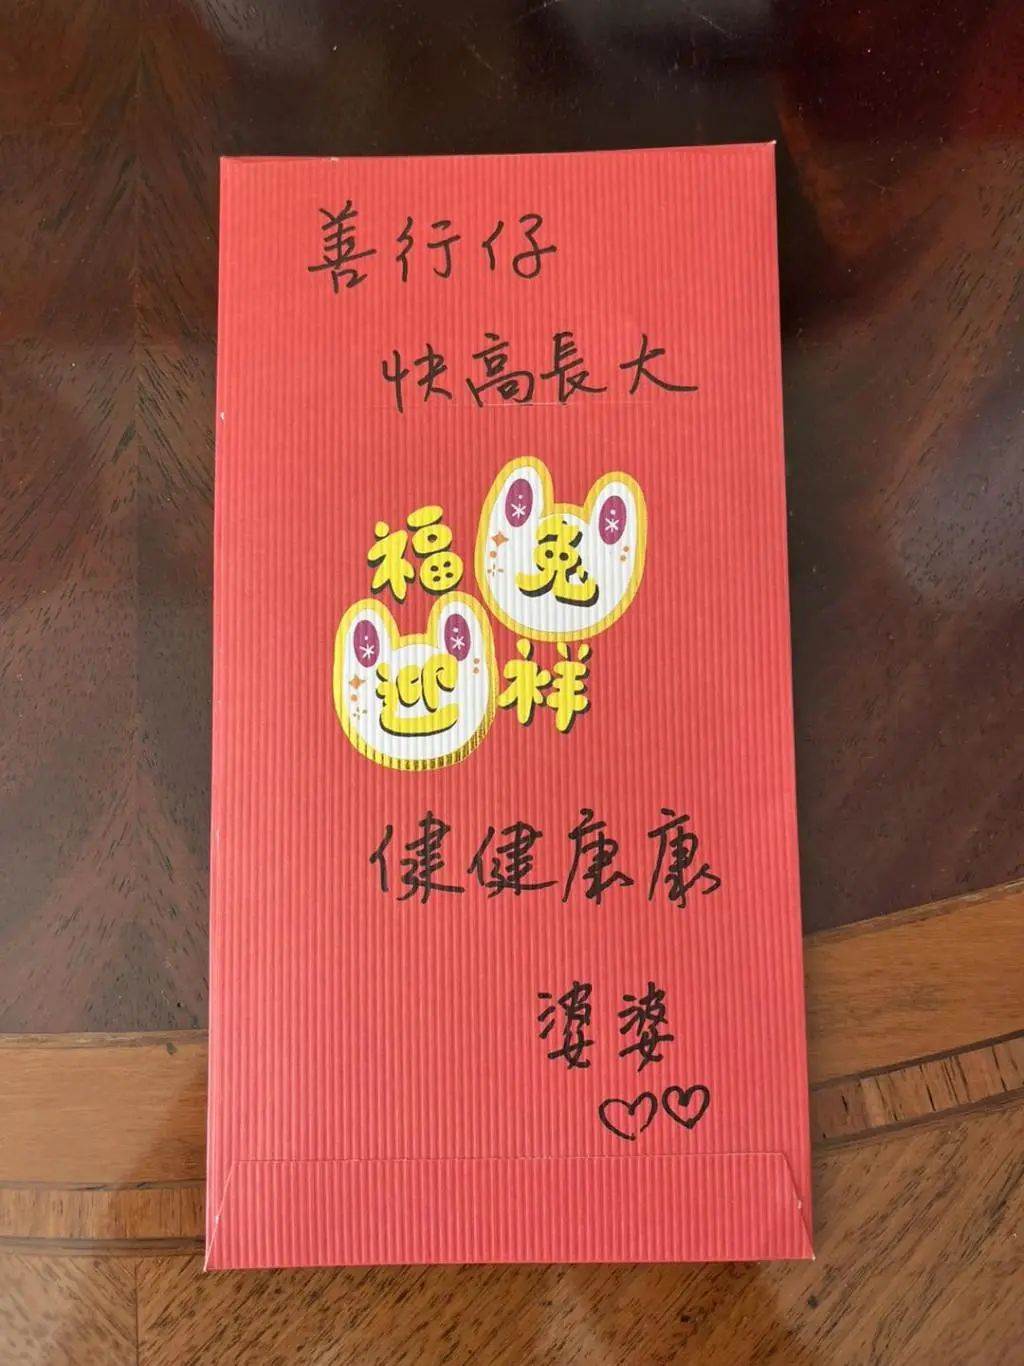 善行仔
快高長大
福兔
迎祥
健健康康
婆婆